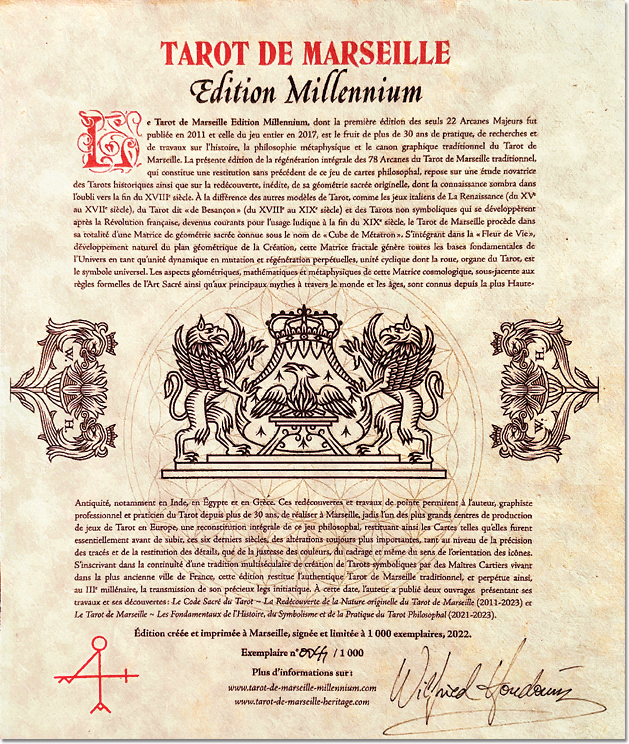 TAROT DE MARSEILLE
Edition Millennium
Le Tarot de Marseille Edition Millennium, dont la première édition des seuls 22 Arcanes Majeurs fut
publiée en 2011 et celle du jeu entier en 2017, est le fruit de plus de 30 ans de pratique, de recherches et
de travaux sur l'histoire, la philosophie métaphysique et le canon graphique traditionnel du Tarot de
Marseille. La présente édition de la régénération intégrale des 78 Arcanes du Tarot de Marseille traditionnel,
qui constitue une restitution sans précédent de ce jeu de cartes philosophal, repose sur une étude novatrice
des Tarots historiques ainsi que sur la redécouverte, inédite, de sa géométrie sacrée originelle, dont la connaissance sombra dans
l'oubli vers la fin du XVIIIᵉ siècle. À la différence des autres modèles de Tarot, comme les jeux italiens de La Renaissance (du XVᵉ
au XVIIᵉ siècle), du Tarot dit « de Besançon » (du XVIIIᵉ au XIXᵉ siècle) et des Tarots non symboliques qui se développèrent
après la Révolution française, devenus courants pour l'usage ludique à la fin du XIXᵉ siècle, le Tarot de Marseille procède dans
sa totalité d'une Matrice de géométrie sacrée connue sous le nom de « Cube de Métatron ». S'intégrant dans la « Fleur de Vie »,
développement naturel du plan géométrique de la Création, cette Matrice fractale génère toutes les bases fondamentales de
l'Univers en tant qu'unité dynamique en mutation et régénération perpétuelles, unité cyclique dont la roue, organe du Tarot, est
le symbole universel. Les aspects géométriques, mathématiques et métaphysiques de cette Matrice cosmologique, sous-jacente aux
règles formelles de l'Art Sacré ainsi qu'aux principaux mythes à travers le monde et les âges, sont connus depuis la plus Haute-
W. H.
H. W.
Antiquité, notamment en Inde, en Égypte et en Grèce. Ces redécouvertes et travaux de pointe permirent à l'auteur, graphiste
professionnel et praticien du Tarot depuis plus de 30 ans, de réaliser à Marseille, jadis l'un des plus grands centres de production
de jeux de Tarot en Europe, une reconstitution intégrale de ce jeu philosophal, restituant ainsi les Cartes telles qu'elles furent
essentiellement avant de subir, ces six derniers siècles, des altérations toujours plus importantes, tant au niveau de la précision
des tracés et de la restitution des détails, que de la justesse des couleurs, du cadrage et même du sens de l'orientation des icônes.
S'inscrivant dans la continuité d'une tradition multiséculaire de création de Tarots symboliques par des Maîtres Cartiers vivant
dans la plus ancienne ville de France, cette édition restitue l'authentique Tarot de Marseille traditionnel, et perpétue ainsi,
au IIIᵉ millénaire, la transmission de son précieux legs initiatique. À cette date, l'auteur a publié deux ouvrages présentant ses
travaux et ses découvertes : Le Code Sacré du Tarot ~ La Redécouverte de la Nature originelle du Tarot de Marseille (2011-2023) et
Le Tarot de Marseille ~ Les Fondamentaux de l'Histoire, du Symbolisme et de la Pratique du Tarot Philosophal (2021-2023).
Édition créée et imprimée à Marseille, signée et limitée à 1 000 exemplaires, 2022.
Exemplaire n° / 1 000
Plus d'informations sur :
www.tarot-de-marseille-millennium.com
www.tarot-de-marseille-heritage.com
Wilfried Houdouin